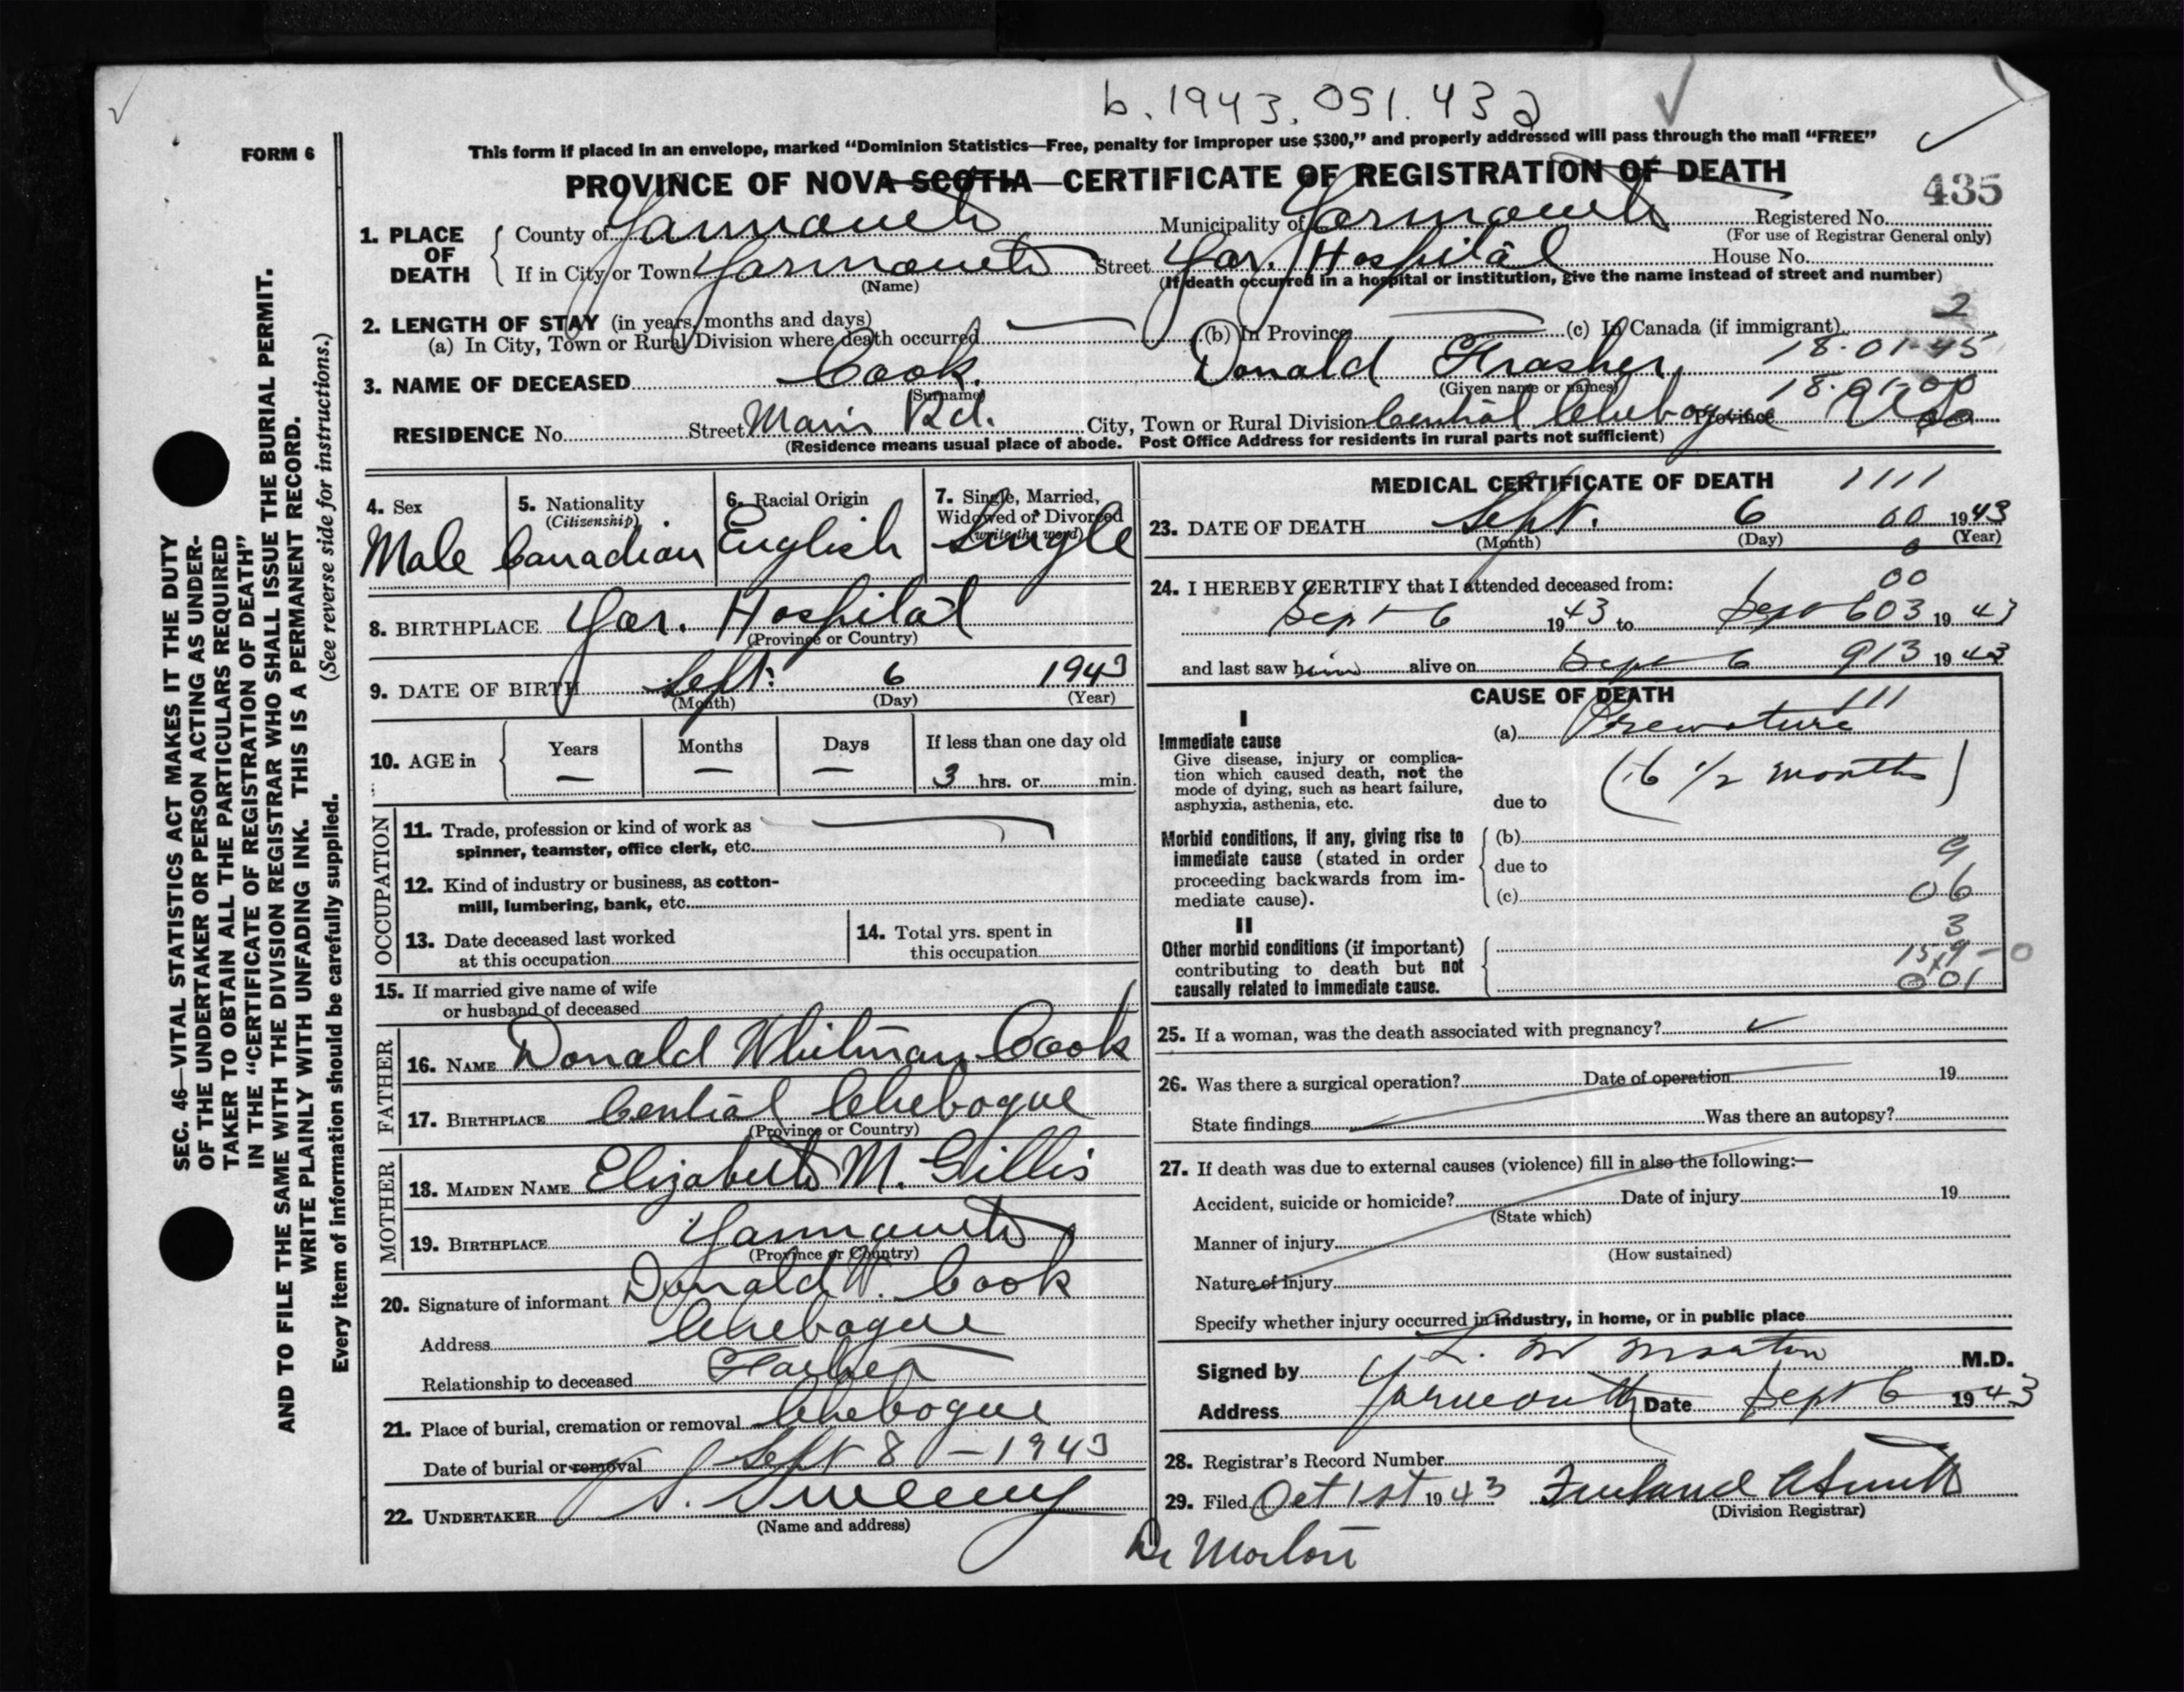 b. 1943. 051. 432
FORM 6
This form if placed in an envelope, marked “Dominion Statistics—Free, penalty for improper use $300,” and properly addressed will pass through the mail “FREE”
PROVINCE OF NOVA SCOTIA—CERTIFICATE OF REGISTRATION OF DEATH
435
1. PLACE OF DEATH
County of Yarmouth Municipality of Yarmouth Registered No.
(For use of Registrar General only)
If in City or Town Yarmouth Street Yar. Hospital House No.
(Name) (If death occurred in a hospital or institution, give the name instead of street and number)
2. LENGTH OF STAY (in years, months and days) 2
(a) In City, Town or Rural Division where death occurred (b) In Province (c) In Canada (if immigrant)
18.01-45
3. NAME OF DECEASED Cook. Donald Frasher
(Surname) (Given name or names) 18.01-00
RESIDENCE No. Street Main Rd. City, Town or Rural Division Central Chebogue Province
(Residence means usual place of abode. Post Office Address for residents in rural parts not sufficient)
4. Sex Male
5. Nationality (Citizenship) Canadian
6. Racial Origin English
7. Single, Married, Widowed or Divorced (write the word) Single
8. BIRTHPLACE Yar. Hospital
(Province or Country)
9. DATE OF BIRTH Sept. 6 1943
(Month) (Day) (Year)
10. AGE in Years — Months — Days — If less than one day old
3 hrs. or min.
OCCUPATION
11. Trade, profession or kind of work as
spinner, teamster, office clerk, etc.
12. Kind of industry or business, as cotton-
mill, lumbering, bank, etc.
13. Date deceased last worked
at this occupation
14. Total yrs. spent in
this occupation
15. If married give name of wife
or husband of deceased
FATHER
16. NAME Donald Whitman Cook
17. BIRTHPLACE Central Chebogue
(Province or Country)
MOTHER
18. MAIDEN NAME Elizabeth M. Gillis
19. BIRTHPLACE Yarmouth
(Province or Country)
20. Signature of informant Donald W. Cook
Address Chebogue
Relationship to deceased Father
21. Place of burial, cremation or removal Chebogue
Date of burial or removal Sept 8 – 1943
22. UNDERTAKER Sweeny
(Name and address)
MEDICAL CERTIFICATE OF DEATH 1111
23. DATE OF DEATH Sept. 6 00 1943
(Month) (Day) 0 (Year)
24. I HEREBY CERTIFY that I attended deceased from: 00
Sept 6 1943 to Sept 6 03 1943
and last saw him alive on Sept 6 913 1943
CAUSE OF DEATH
111
I
Immediate cause
Give disease, injury or complica-
tion which caused death, not the
mode of dying, such as heart failure,
asphyxia, asthenia, etc.
(a) Premature
(6 1/2 months)
due to
Morbid conditions, if any, giving rise to
immediate cause (stated in order
proceeding backwards from im-
mediate cause).
(b)
9
due to
(c) 06
II
3
Other morbid conditions (if important)
contributing to death but not
causally related to immediate cause.
159-0
001
25. If a woman, was the death associated with pregnancy?
26. Was there a surgical operation? Date of operation 19
State findings Was there an autopsy?
27. If death was due to external causes (violence) fill in also the following:—
Accident, suicide or homicide? Date of injury 19
(State which)
Manner of injury
(How sustained)
Nature of injury
Specify whether injury occurred in industry, in home, or in public place
Signed by L. M Morton M.D.
Address Yarmouth Date Sept 6 1943
28. Registrar's Record Number
29. Filed Oct 1st 1943
(Division Registrar)
Dr Morton
SEC. 46—VITAL STATISTICS ACT MAKES IT THE DUTY
OF THE UNDERTAKER OR PERSON ACTING AS UNDER-
TAKER TO OBTAIN ALL THE PARTICULARS REQUIRED
IN THE “CERTIFICATE OF REGISTRATION OF DEATH”
AND TO FILE THE SAME WITH THE DIVISION REGISTRAR WHO SHALL ISSUE THE BURIAL PERMIT.
WRITE PLAINLY WITH UNFADING INK. THIS IS A PERMANENT RECORD.
Every item of information should be carefully supplied. (See reverse side for instructions.)